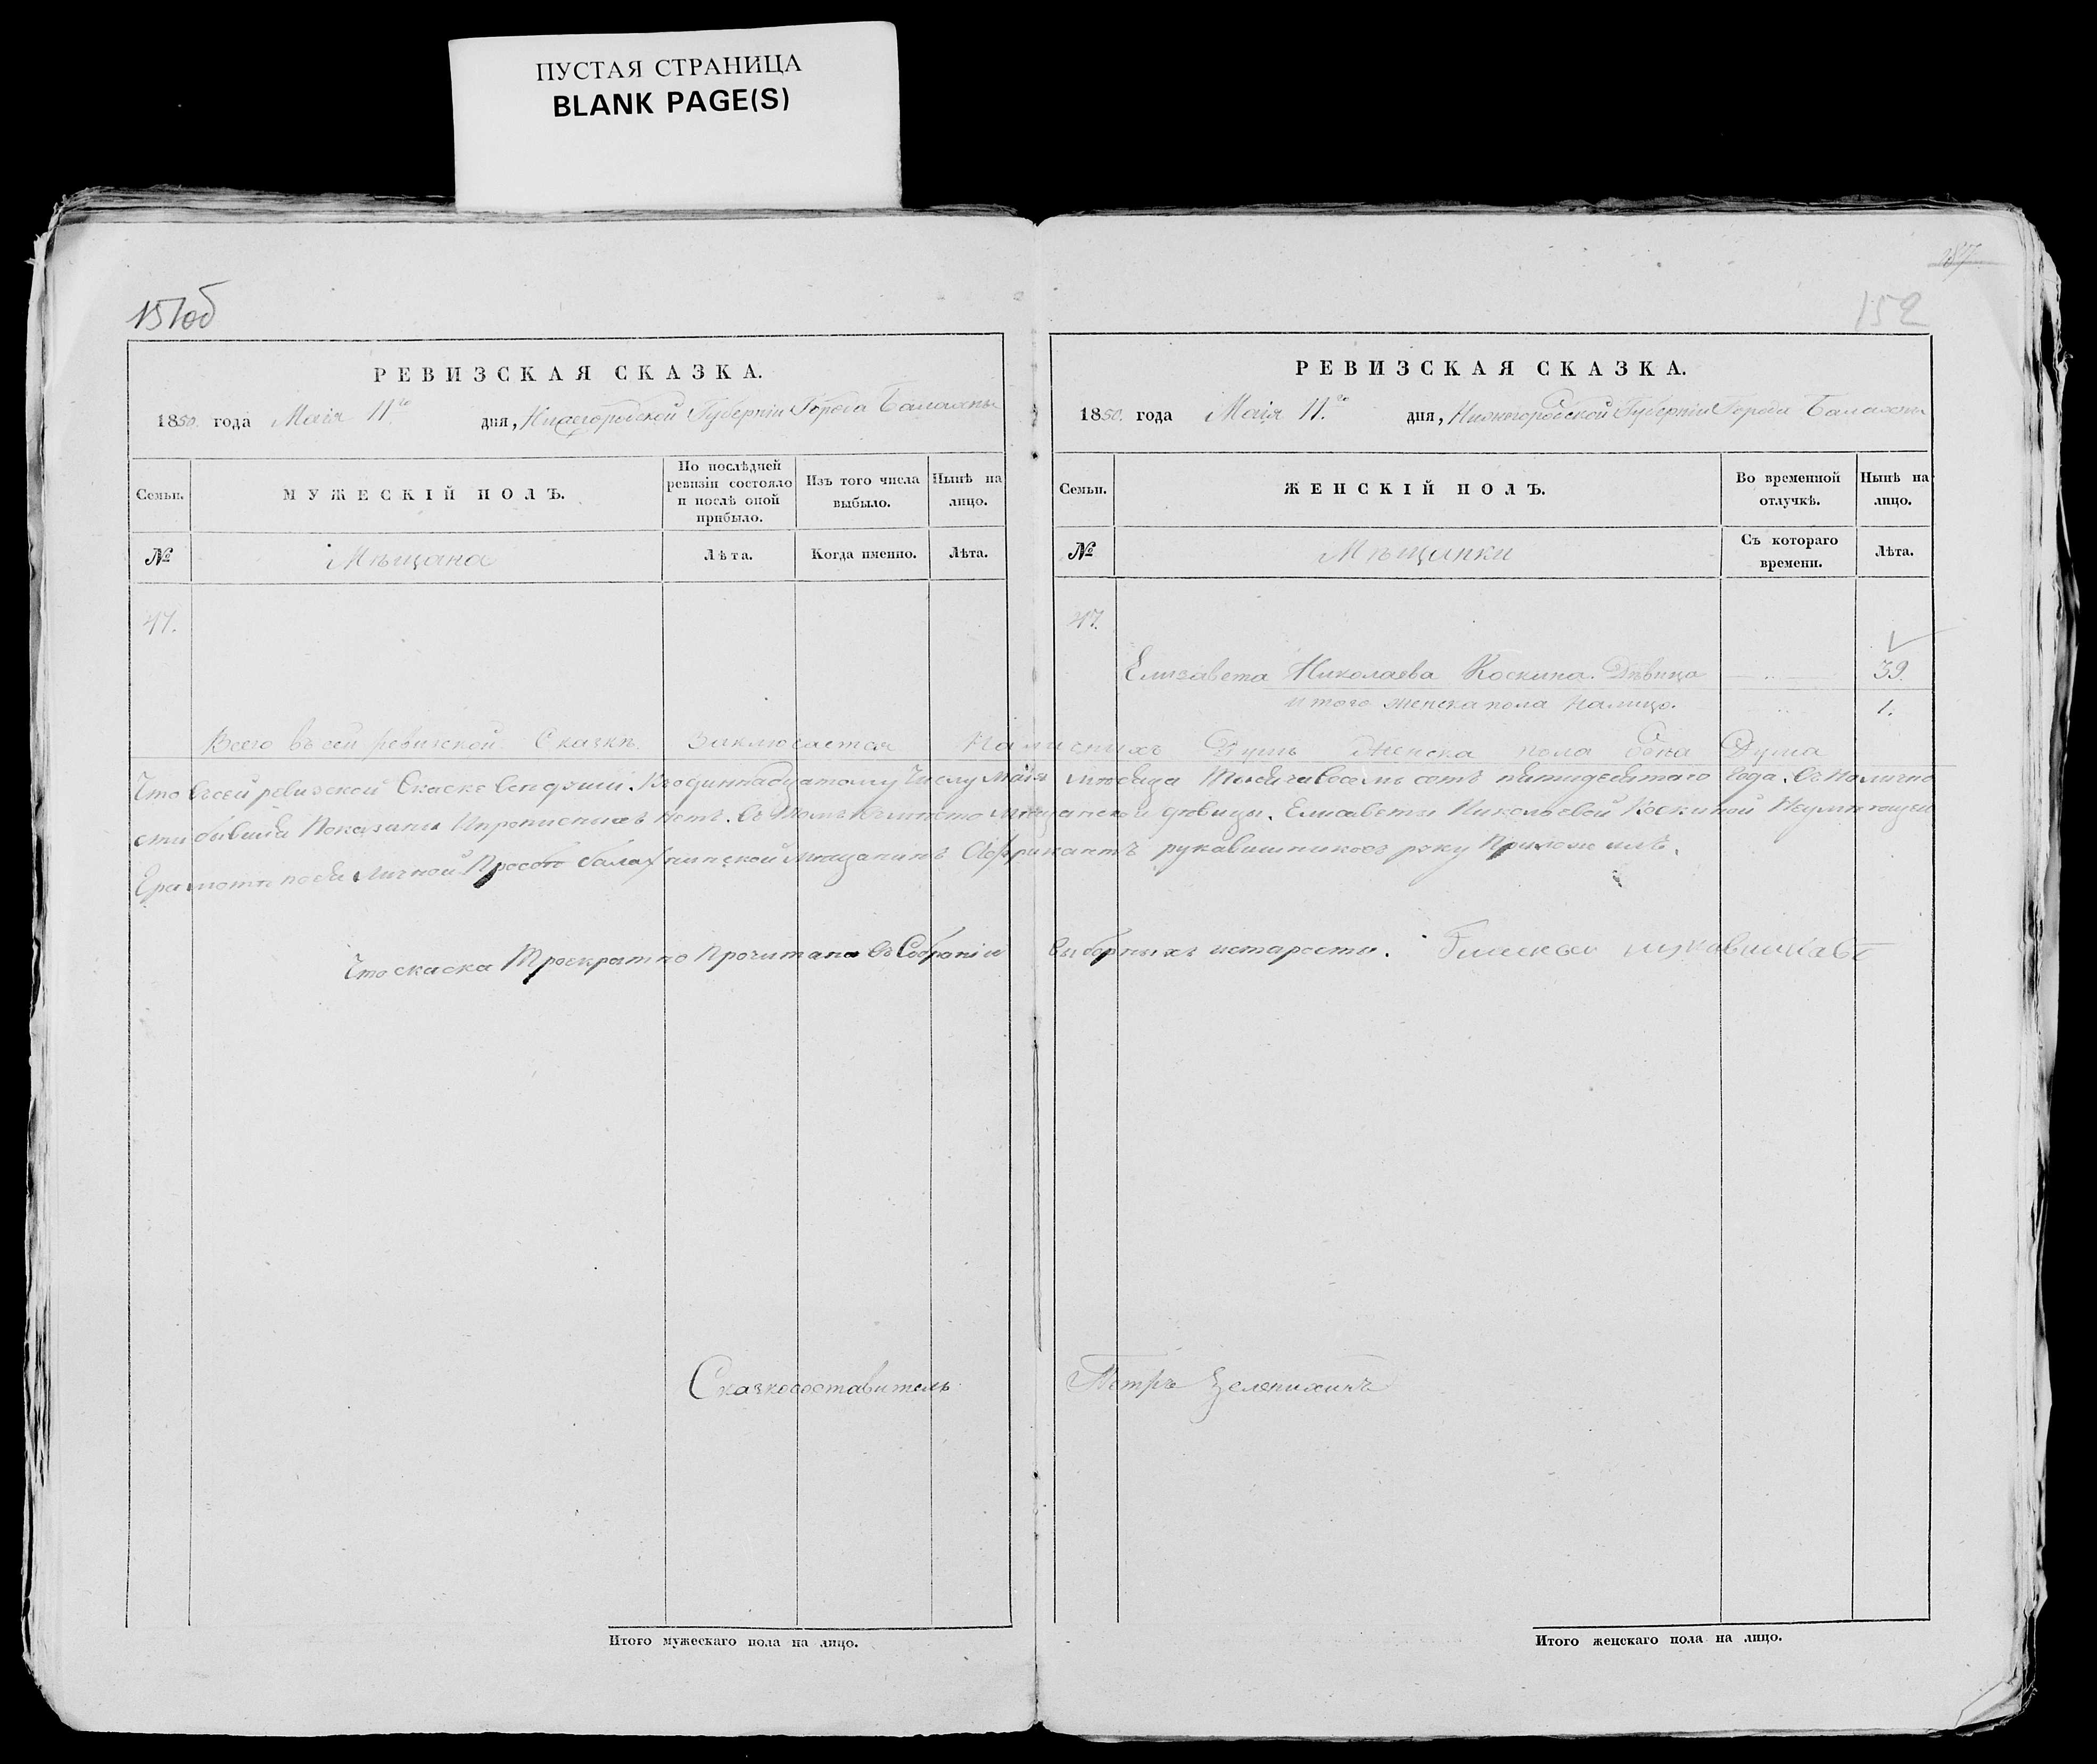 ПУСТАЯ СТРАНИЦА
BLANK PAGE(S)
151об
РЕВИЗСКАЯ СКАЗКА.
1850. года Маія 11го дня, Нижегородской Губерніи Города Балахны
Семьи.
МУЖЕСКІЙ ПОЛЪ.
По послѣдней ревизіи состояло и послѣ оной прибыло.
Изъ того числа выбыло.
Нынѣ на лицо.
№
Мѣщана
Лѣта.
Когда именно.
Лѣта.
47.
152
РЕВИЗСКАЯ СКАЗКА.
1850. года Маія 11.го дня, Нижегородской Губерніи Города Балахны
Семьи.
ЖЕНСКІЙ ПОЛЪ.
Во временной отлучкѣ.
Нынѣ на лицо.
№
Мѣщанки
Съ котораго времени.
Лѣта.
47.
Елизавета Николаева Коскина. Дѣвица 39.
итого женска пола налицо. 1.
Всего въ сей ревизской Сказкѣ Заключается Наличныхъ Душъ Женска пола одна Душа
Что въсей ревизской Скаске Ко одиннадцатому Числу маія месеца Тысяча восемь сотъ пятидесятаго Года. Въ налично
сти бывшия показаны Ипрописныхъ нетъ. Въ томъ мещанской девицы. Елисаветы Никольевой Коскиной Неумеющей
Грамоте поея Личной Прозбе балахнинской мещанинъ Аффрикантъ рукавишниковъ руку Приложилъ.
Что скаска Троекратно Прочитана въ Собраніи выборныхъ истаросты.
Сказкосоставитель Петръ Зелепихинъ
Итого мужескаго пола на лицо.
Итого женскаго пола на лицо.